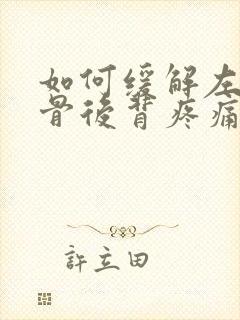 如何缓解左
骨後背疼痛
許立田